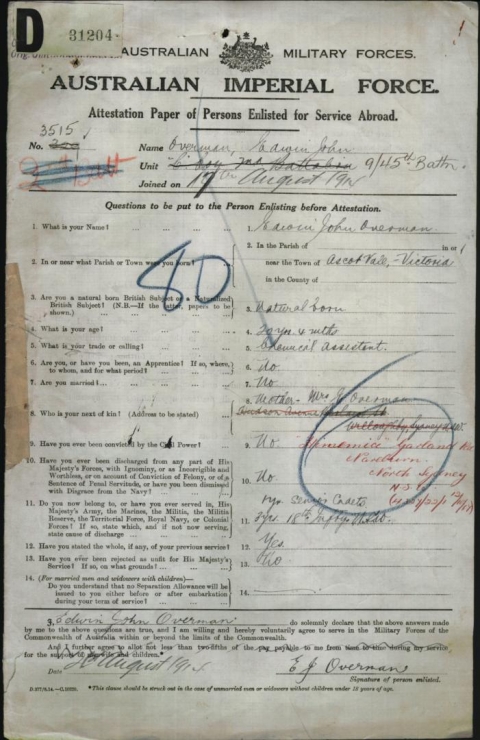 D 31204
AUSTRALIAN MILITARY FORCES.
AUSTRALIAN IMPERIAL FORCE.
Attestation Paper of Persons Enlisted for Service Abroad.
3515
No. Name Overman, Edwin John
Unit "C" Coy 2nd Battalion 9/45th Battn.
Joined on 17th August 19
Questions to be put to the Person Enlisting before Attestation.
1. What is your Name? 1. Edwin John Overman
2. In or near what Parish or Town were you born? 2. In the Parish of in or
near the Town of Ascot Vale, - Victoria
in the County of
80
3. Are you a natural born British Subject or a Naturalised
British Subject? (N.B.—If the latter, papers to be
shown.) 3. Natural born
4. What is your age? 4. 20 yrs mths
5. What is your trade or calling? 5. Assistant.
6. Are you, or have you been, an Apprentice? If so, where,
to whom, and for what period? 6. No
7. Are you married? 7. No
8. Who is your next of kin? (Address to be stated) 8. Mother - Mrs J. Overman
Willoughby Sydney
9. Have you ever been convicted by the Civil Power? 9. No
North Sydney
10. Have you ever been discharged from any part of His
Majesty's Forces, with Ignominy, or as Incorrigible and
Worthless, or on account of Conviction of Felony, or of a
Sentence of Penal Servitude, or have you been dismissed
with Disgrace from the Navy? 10. No
11. Do you now belong to, or have you ever served in, His
Majesty's Army, the Marines, the Militia, the Militia
Reserve, the Territorial Force, Royal Navy, or Colonial
Forces? If so, state which, and if not now serving,
state cause of discharge 11. Senior Cadets
2 yrs. 18th Inf
12. Have you stated the whole, if any, of your previous service? 12. Yes
13. Have you ever been rejected as unfit for His Majesty's
Service? If so, on what grounds? 13. No
14. (For married men and widowers with children)—
Do you understand that no Separation Allowance will be
issued to you either before or after embarkation
during your term of service? 14.
I, Edwin John Overman do solemnly declare that the above answers made
by me to the above questions are true, and I am willing and hereby voluntarily agree to serve in the Military Forces of the
Commonwealth of Australia within or beyond the limits of the Commonwealth.
And I further agree to allot not less than two-fifths of the pay payable to me from time to time during my service
for the support of my wife and children.*
Date August 19 E J Overman
Signature of person enlisted.
*This clause should be struck out in the case of unmarried men or widowers without children under 18 years of age.